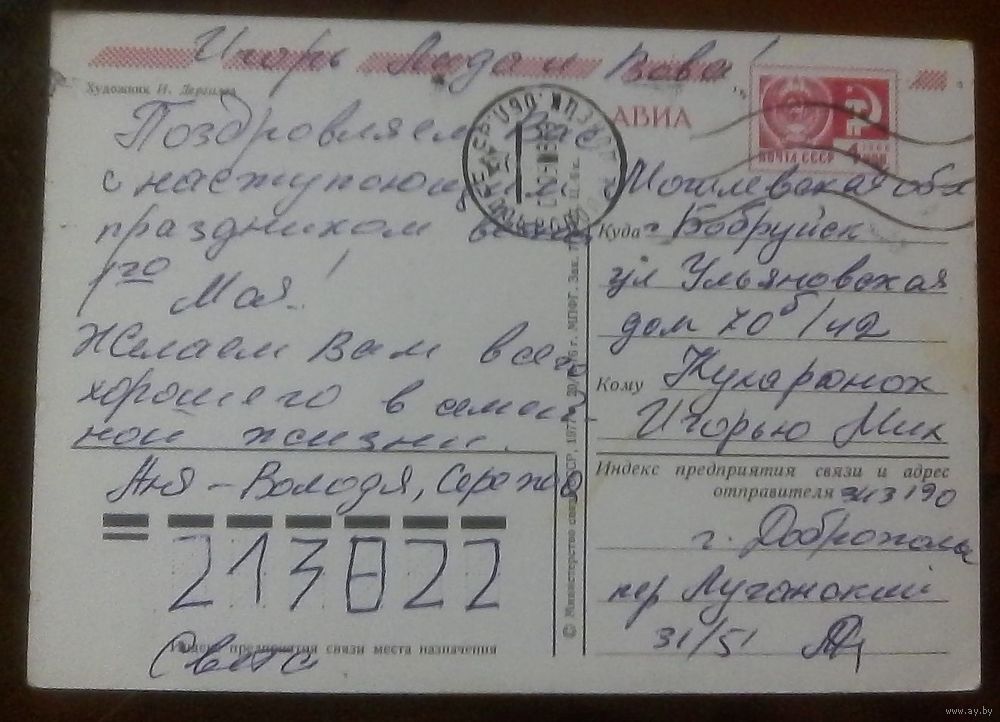 Игорь Лида и Вова!
Художник И. Дергилев
АВИА
ПОЧТА СССР
4
1966
Поздровляем Вас
с наступающим
праздником
1го Мая!
Желаем Вам всего
хорошего в семей-
ной жизни.
Аня – Володя, Сережа
213822
Индекс предприятия связи места назначения
Света
© Министерство связи СССР, 1977
МПФГ. Зак.
Могилевская обл
Куда г Бобруйск
ул Ульяновская
дом 70б/42
Кому
Игорью Мих
Индекс предприятия связи и адрес
отправителя 343190
г. Доброполье
пер Луганский
31/51
www.ay.by